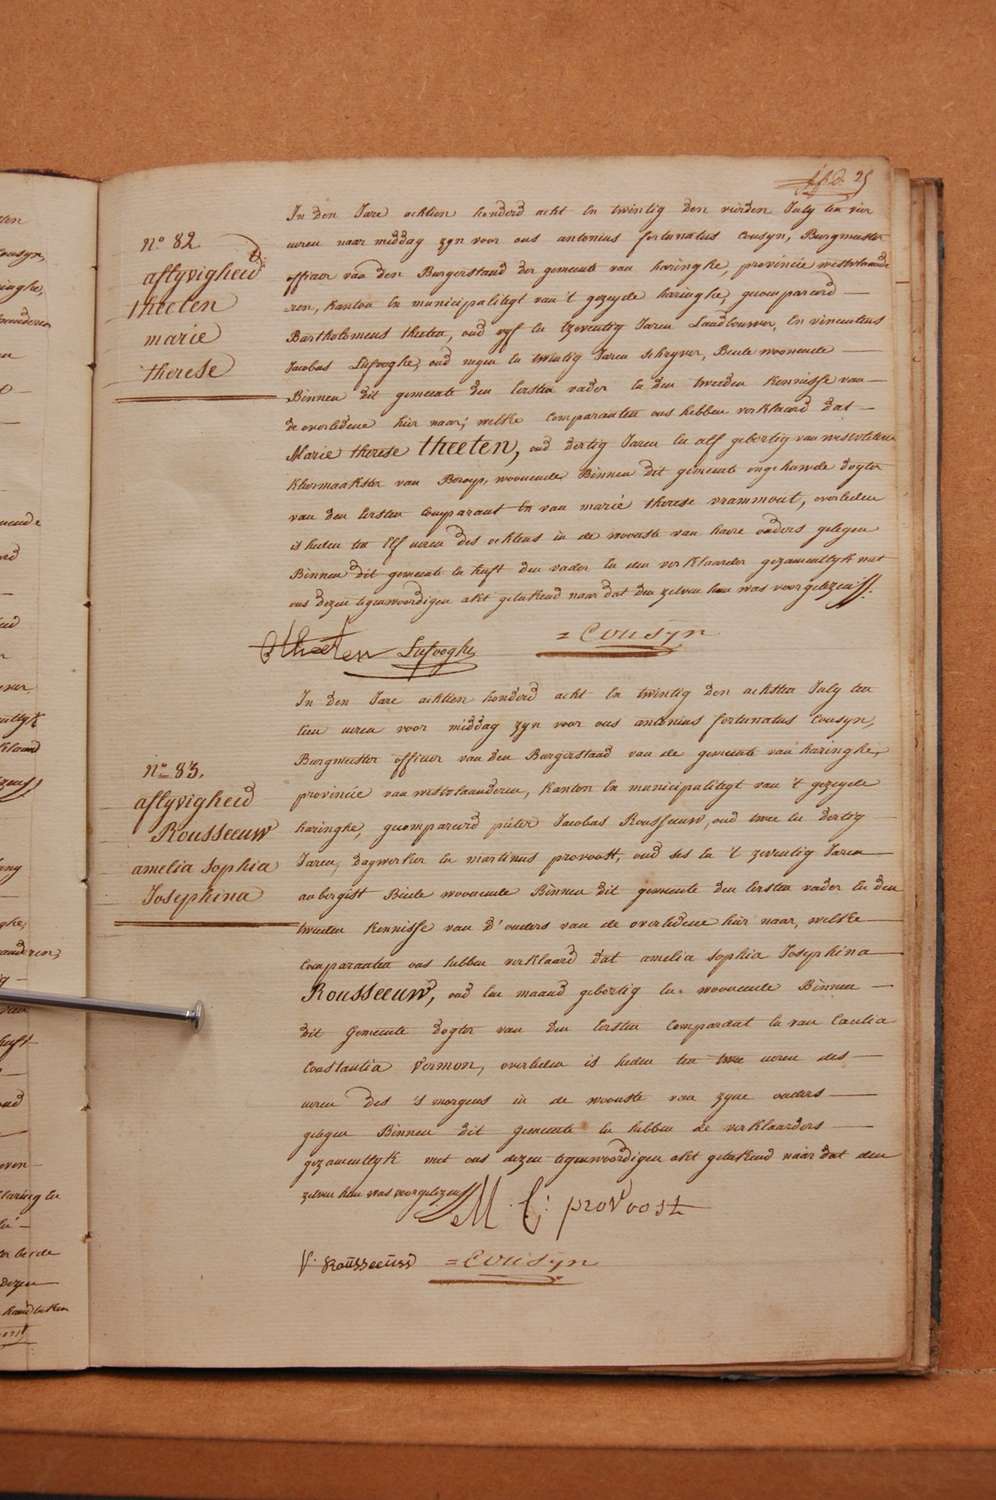 25
n° 82
aflyvigheid
theeten
marie
therese
In den Jare achtien honderd acht en twintig den vierden July ten vier
uren naar middag zyn voor ons antonius fortunatus Cousyn, Burgmeester
officier van den Burgerstand der gemeente van haringhe, provincie westvlaande
ren, kanton en municipalityt van 't gezeyde haringhe, gecompareerd
Bartholomeus theeten, oud vyf en tzeventig Jaren Landbouwer, En vincentius
Jacobus Lefooghe, oud negen en twintig Jaren schryver, Beide woonende
Binnen dit gemeente den Eersten vader en den tweeden kennisse van
de overledene hier naar; welke comparanten ons hebben verklaerd dat
Marie therese theeten, oud dertig Jaren en alf gebortig van westvleteren
kleermaakster van Beroep, woonende Binnen dit gemeente ongehuwde dogter
van den Eersten Comparant En van marie therese vrammout, overleden
is heden ten Elf uren des ochtens in de wooste van haere ouders gelegen
Binnen dit gemeente en heeft den vader en den verklaarder gezamentlyk met
ons dezen tegenwoordigen akt geteekend naar dat den zelven hun was voorgelezen
theeten Lefooghe = Cousyn
n° 83.
aflyvigheid
Rousseeuw
amelia Sophia
Josephina
In den Jare achtien honderd acht en twintig den achsten July ten
tien uren voor middag zyn voor ons antonius fortunatus Cousyn,
Burgmeester officier van den Burgerstand van de gemeente van haringhe,
provincie van westvlaanderen, kanton en municipalityt van 't gezeyde
haringhe, gecompareerd pieter Jacobus Rousseeuw, oud twee en dertig
Jaren, dagwerker en martinus provoost, oud ses en 't zeventig Jaren
aubergist Beide woonende Binnen dit gemeente den Eersten vader en den
tweeden kennisse van d'ouders van de overledene hier naar, welke
Comparanten ons hebben verklaard dat amelia sophia Josephina
Rousseeuw, oud een maand gebortig en woonende Binnen
dit Gemeente dogter van den Eersten Comparant en van Caulia
Constantia Vermon, overleden is heden ten twee uren des
uren des 's morgens in de wooste van zyne ouders
gelegen Binnen dit gemeente en hebben de verklaarders
gezamentlyk met ons dezen tegenwoordigen akt geteekend naar dat den
zelven hun was voorgelezen
M. C: provoost
P. Rousseeuw = Cousyn